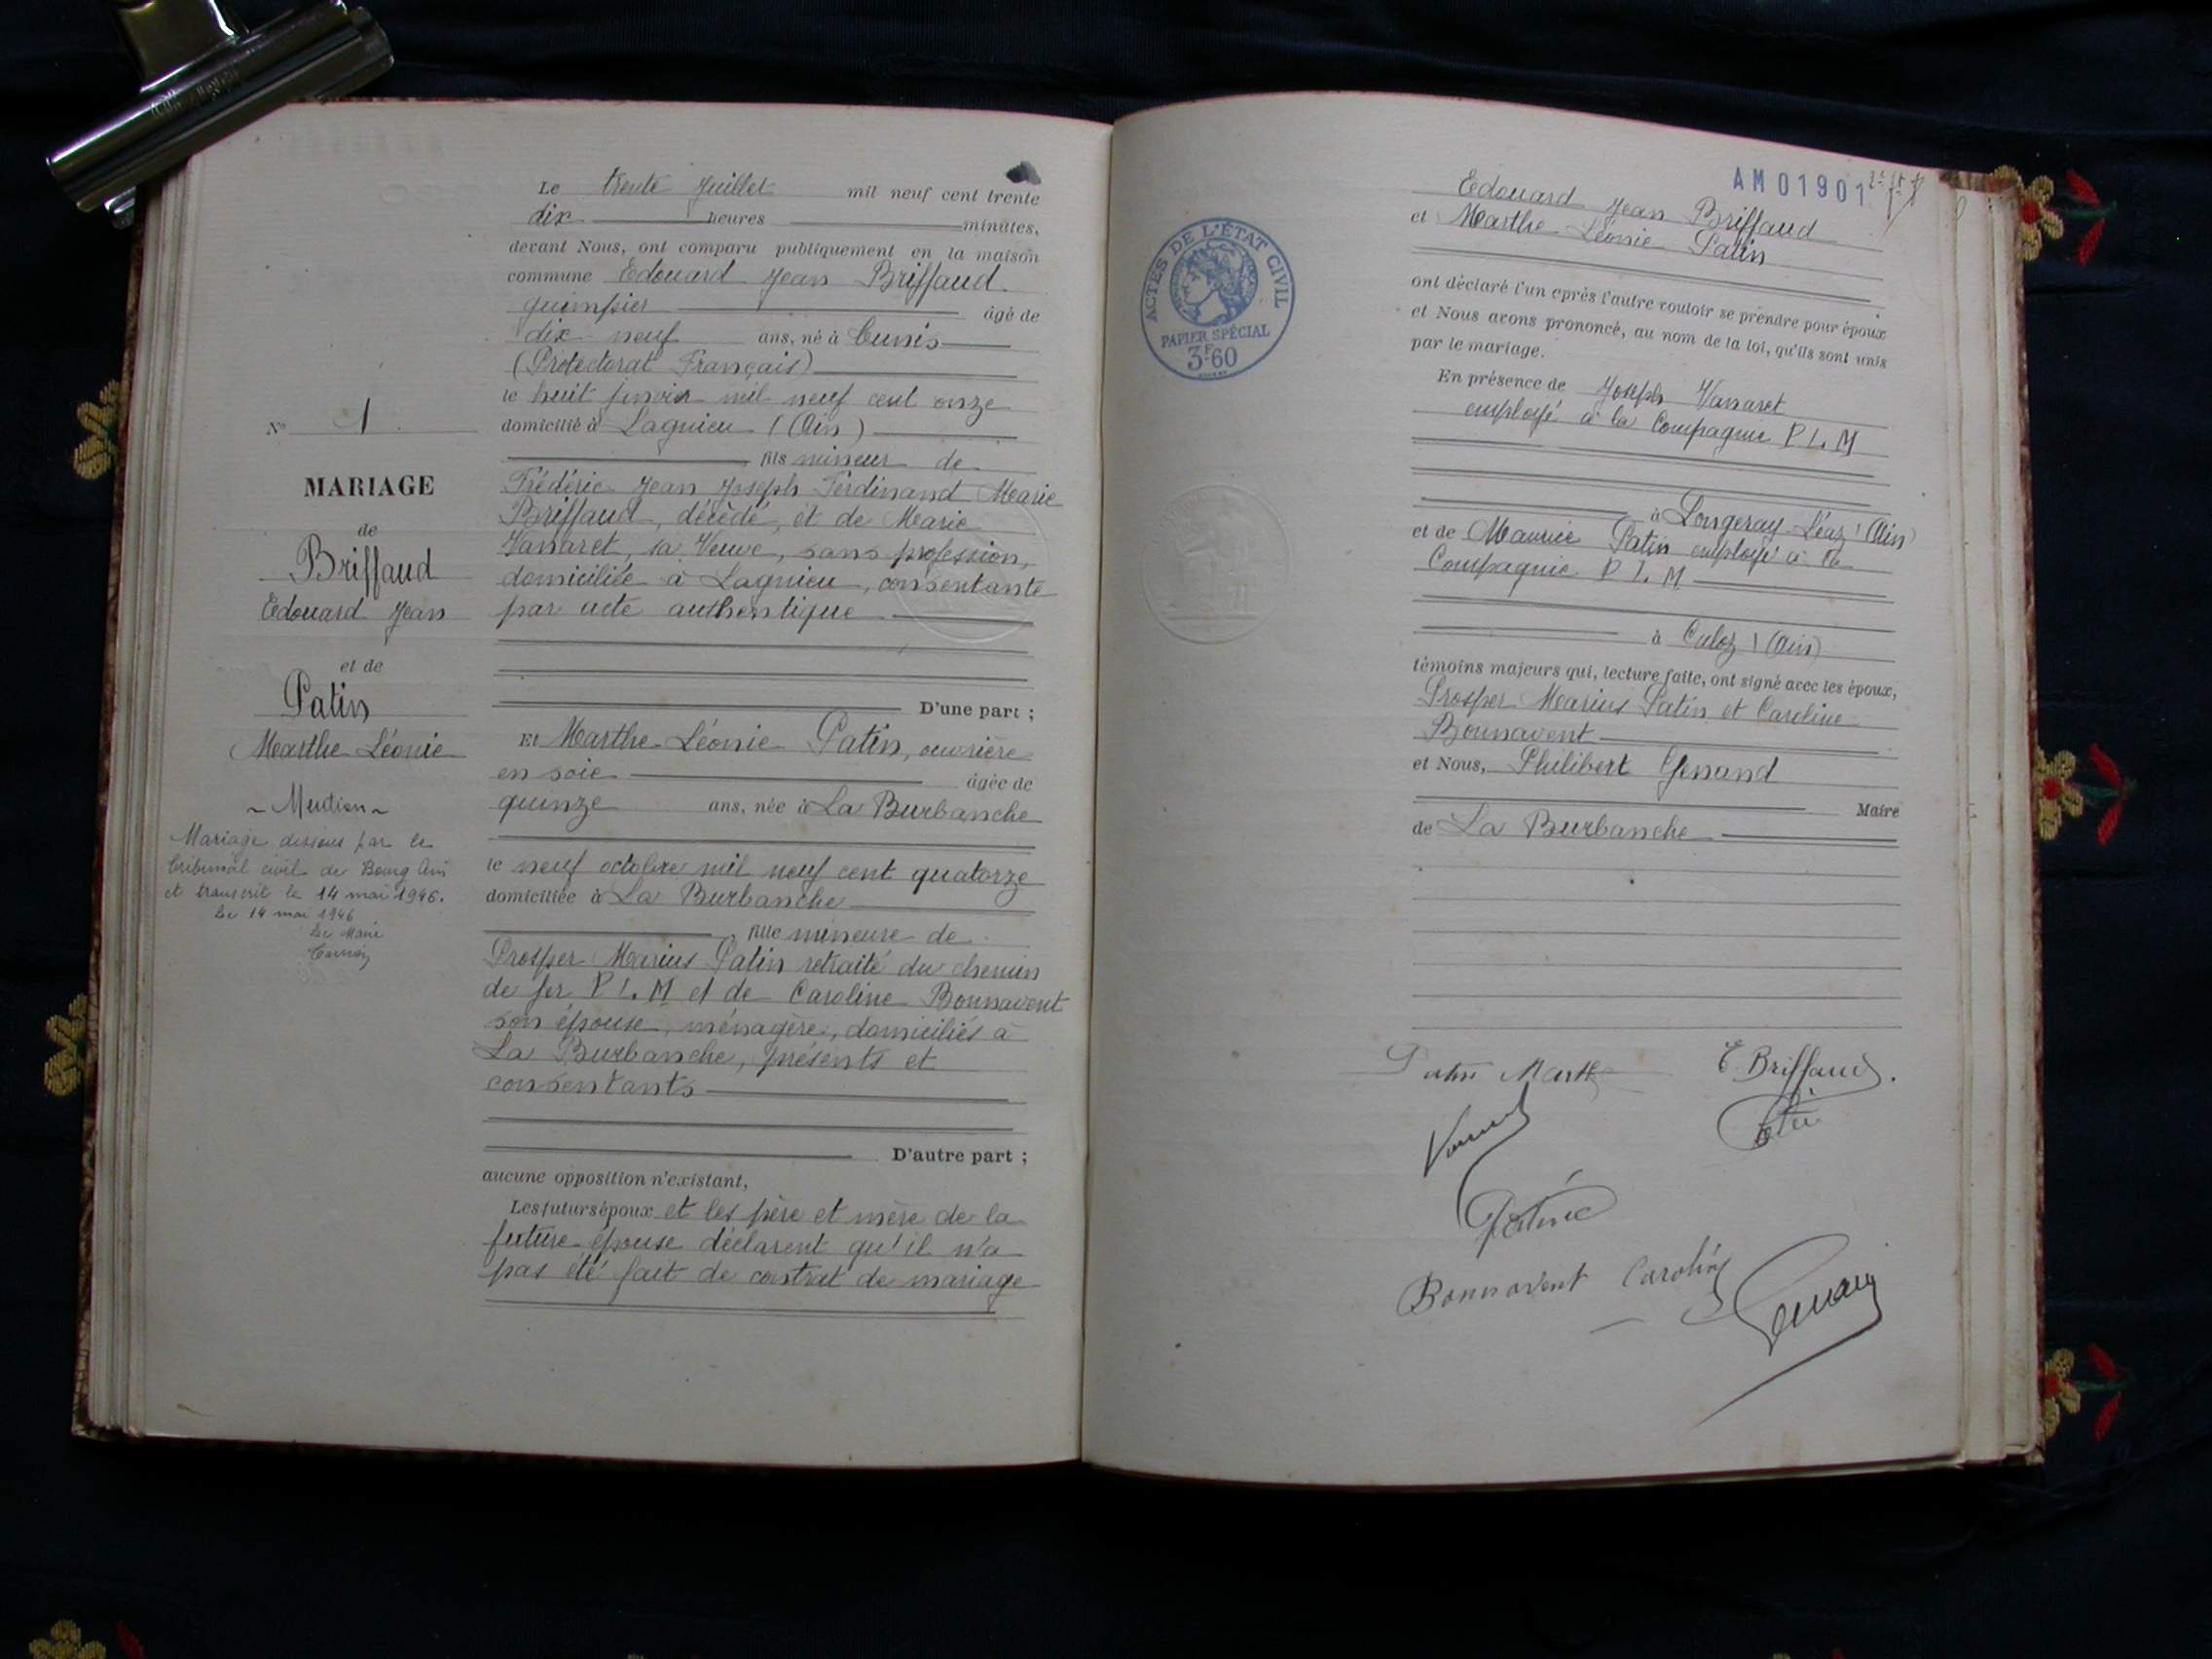 Le trente Juillet mil neuf cent trente
dix heures minutes,
devant Nous, ont comparu publiquement en la maison
commune Edouard Jean Briffaud
guimpier âgé de
dix-neuf ans, né à Tunis
(Protectorat Français)
le huit janvier mil neuf cent onze
domicilié à Lagnieu (Ain)
fils mineur de
Frédéric Jean Joseph Ferdinand Marie
Briffaud, décédé, et de Marie
Vanaret, sa Veuve, sans profession,
domiciliée à Lagnieu, consentante
par acte authentique
D'une part ;
Et Marthe Léonie Patin, ouvrière
en soie âgée de
quinze ans, née à La Burbanche
le neuf octobre mil neuf cent quatorze
domiciliée à La Burbanche
fille mineure de
Prosper Marius Patin retraité du chemin
de fer P. L. M et de Caroline Bonnavent
son épouse, ménagère, domiciliés à
La Burbanche, présents et
consentants
D'autre part ;
aucune opposition n'existant,
Les futurs époux et les père et mère de la
future épouse déclarent qu'il n'a
pas été fait de contrat de mariage
N° 1
MARIAGE
de
Briffaud
Edouard Jean
et de
Patin
Marthe Léonie
~ Mention ~
Mariage dissous par le
tribunal civil de Bourg Ain
et transcrit le 14 mai 1946.
Le 14 mai 1946
Le Maire
AM01901
ACTES DE L'ÉTAT CIVIL
PAPIER SPÉCIAL
3F60
Edouard Jean Briffaud
et Marthe Léonie Patin
ont déclaré l'un après l'autre vouloir se prendre pour époux
et Nous avons prononcé, au nom de la loi, qu'ils sont unis
par le mariage.
En présence de Joseph Vanaret
employé à la Compagnie P. L. M
à Longeray-Léaz (Ain)
et de Maurice Patin employé à la
Compagnie P. L. M
à Culoz (Ain)
témoins majeurs qui, lecture faite, ont signé avec les époux,
Prosper Marius Patin et Caroline
Bonnavent
et Nous, Philibert Genand
Maire
de La Burbanche
Patin Marthe E. Briffaud.
Bonnavent Caroline